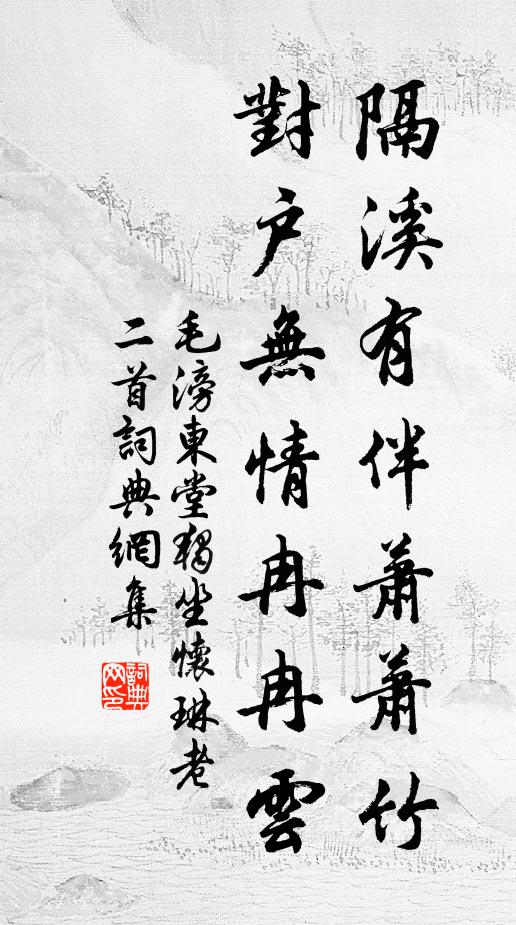 隔溪有伴蕭蕭竹
對户無情冉冉雲
毛滂東堂獨坐懷琳老
二首詞典網集
詞典
网印